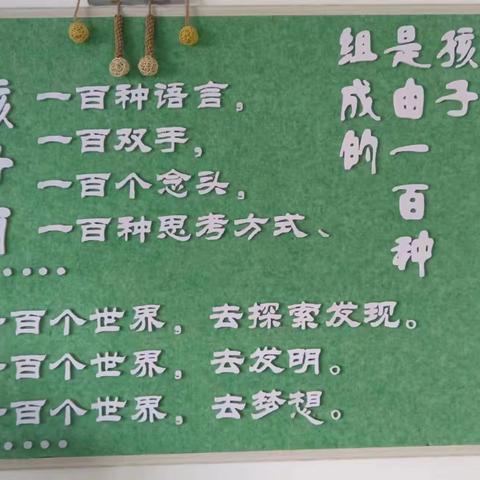 孩子
是由一百种
组成的
孩子有
一百种语言，
一百双手，
一百个念头，
一百种思考方式、
……
一百个世界，去探索发现。
一百个世界，去发明。
一百个世界，去梦想。
……